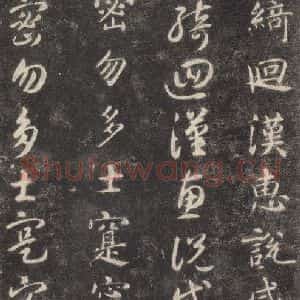 綺迴漢惠說感
綺迴漢惠說感
密勿多士寔寧
密勿多士寔寧
Shufawang.cn